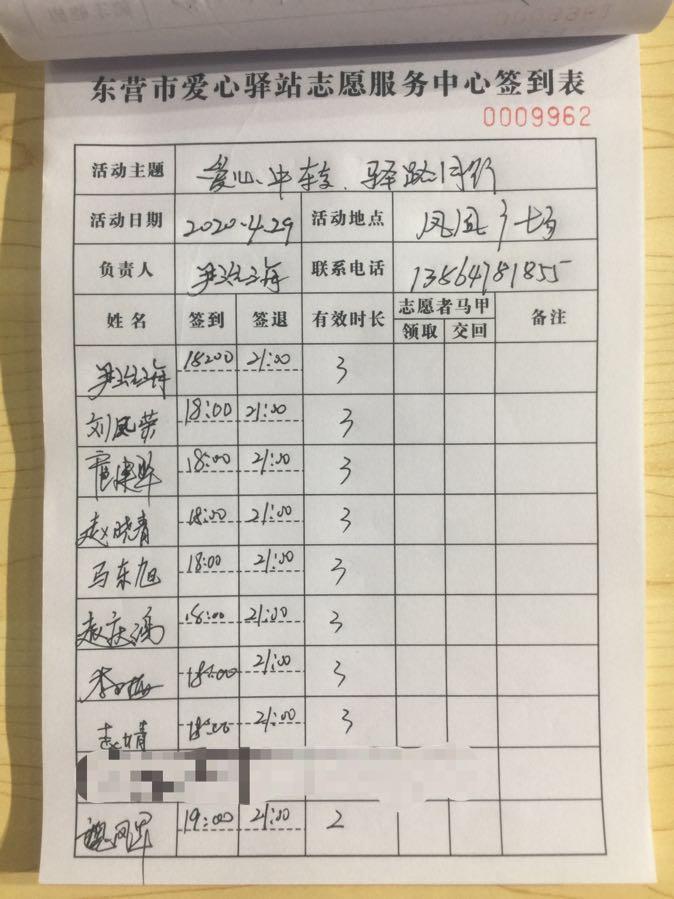 东营市爱心驿站志愿服务中心签到表
0009962
活动主题 爱心中转、驿路同行
活动日期 2020.4.29 活动地点 凤凰广场
负责人 联系电话 13564781855
姓名 签到 签退 有效时长 志愿者马甲 备注
领取 交回
18:00 21:00 3
刘凤荣 18:00 21:00 3
18:00 21:00 3
赵晓青 18:00 21:00 3
马东旭 18:00 21:00 3
赵庆鸿 18:00 21:00 3
李 18:00 21:00 3
赵婧 18:00 21:00 3
19:00 21:00 2